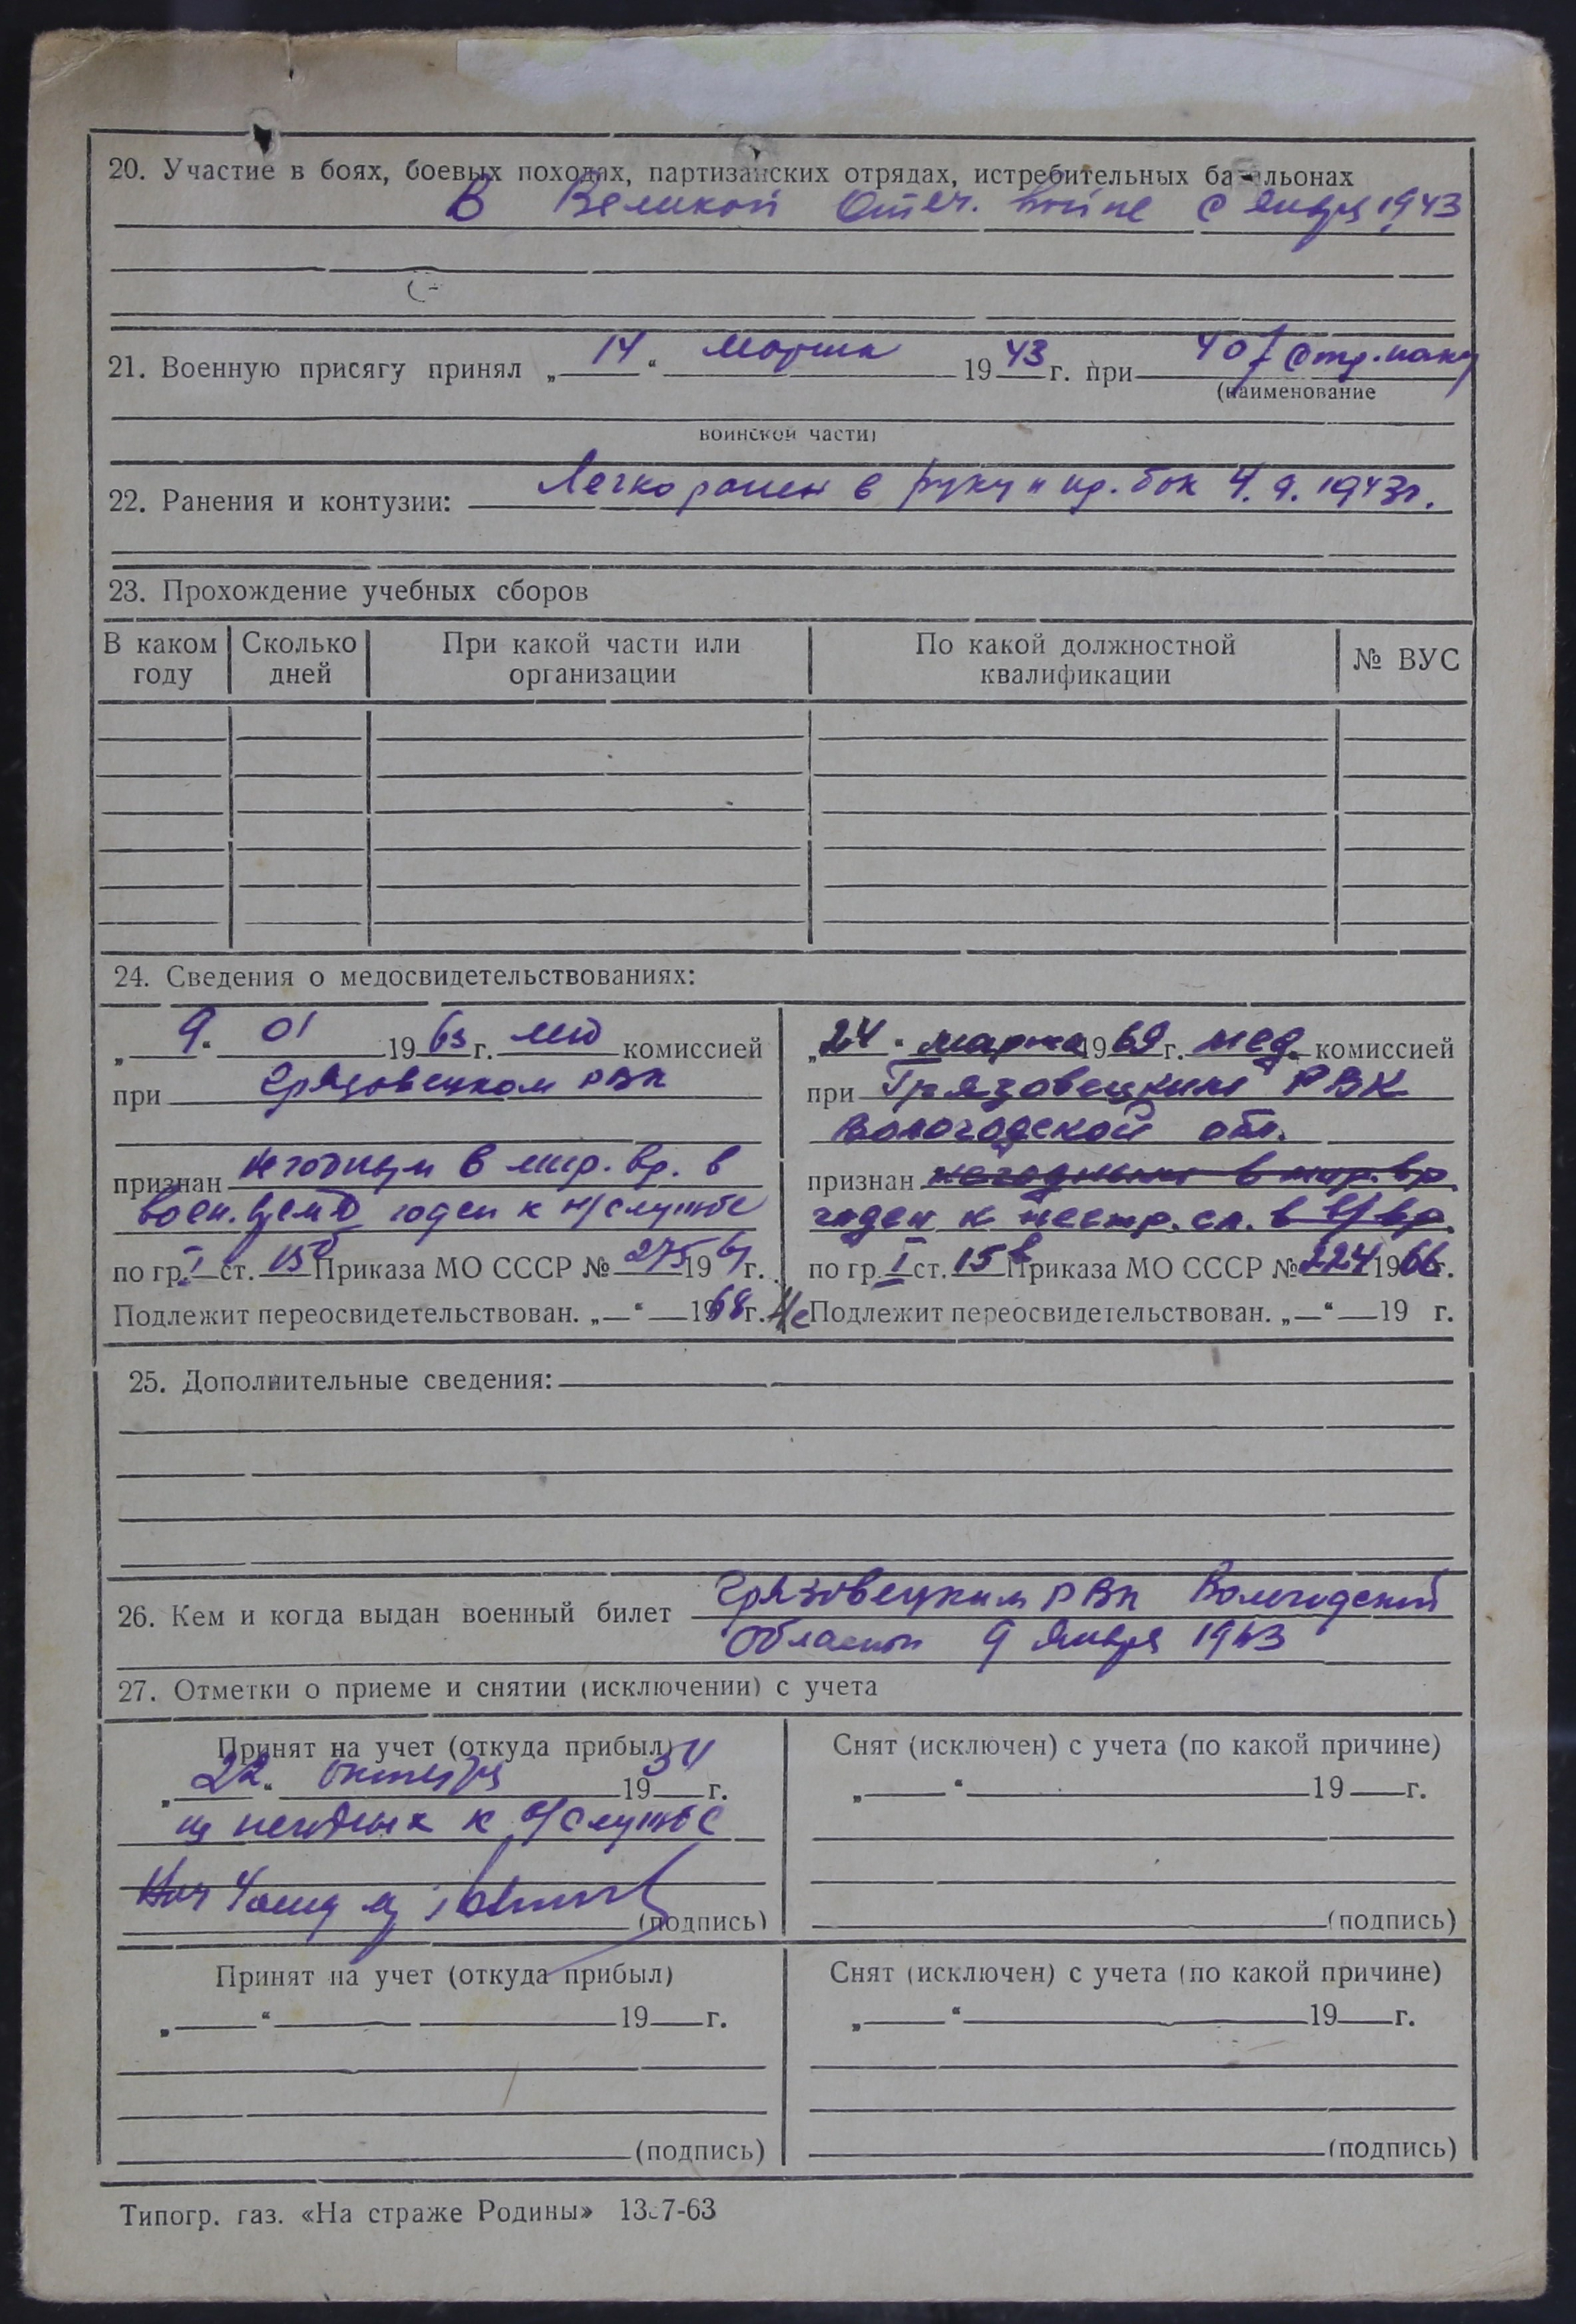 20. Участие в боях, боевых походах, партизанских отрядах, истребительных батальонах
В Великой Отеч. войне с января 1943
21. Военную присягу принял „14“ марта 1943 г. при 407 отд.
(наименование
воинской части)
22. Ранения и контузии: Легко ранен в руку и пр. бок 4.9.1943г.
23. Прохождение учебных сборов
В каком году | Сколько дней | При какой части или организации | По какой должностной квалификации | № ВУС
24. Сведения о медосвидетельствованиях:
„9“ 01 1963 г. комиссией
при Грязовецком РВК
признан негодным в мир. вр. в
воен. время годен к н/службе
по гр. I ст. 15 Приказа МО СССР № 275 19 г.
Подлежит переосвидетельствован. „—“ — 1968 г.
„24“ марта 1969 г. мед. комиссией
при Грязовецким РВК
Вологодской обл.
признан негодным в мир. вр.
годен к нестр. сл. в в/вр.
по гр. I ст. 15в Приказа МО СССР № 224 1966 г.
Не Подлежит переосвидетельствован. „—“ — 19 г.
25. Дополнительные сведения:
26. Кем и когда выдан военный билет Грязовецким РВК Вологодской
области 9 января 1963
27. Отметки о приеме и снятии (исключении) с учета
Принят на учет (откуда прибыл)
„22“ октября 1954 г.
из негодных к в/службе
Нач 4
(подпись)
Снят (исключен) с учета (по какой причине)
„—“ — 19— г.
(подпись)
Принят на учет (откуда прибыл)
„—“ — 19— г.
(подпись)
Снят (исключен) с учета (по какой причине)
„—“ — 19— г.
(подпись)
Типогр. газ. «На страже Родины»